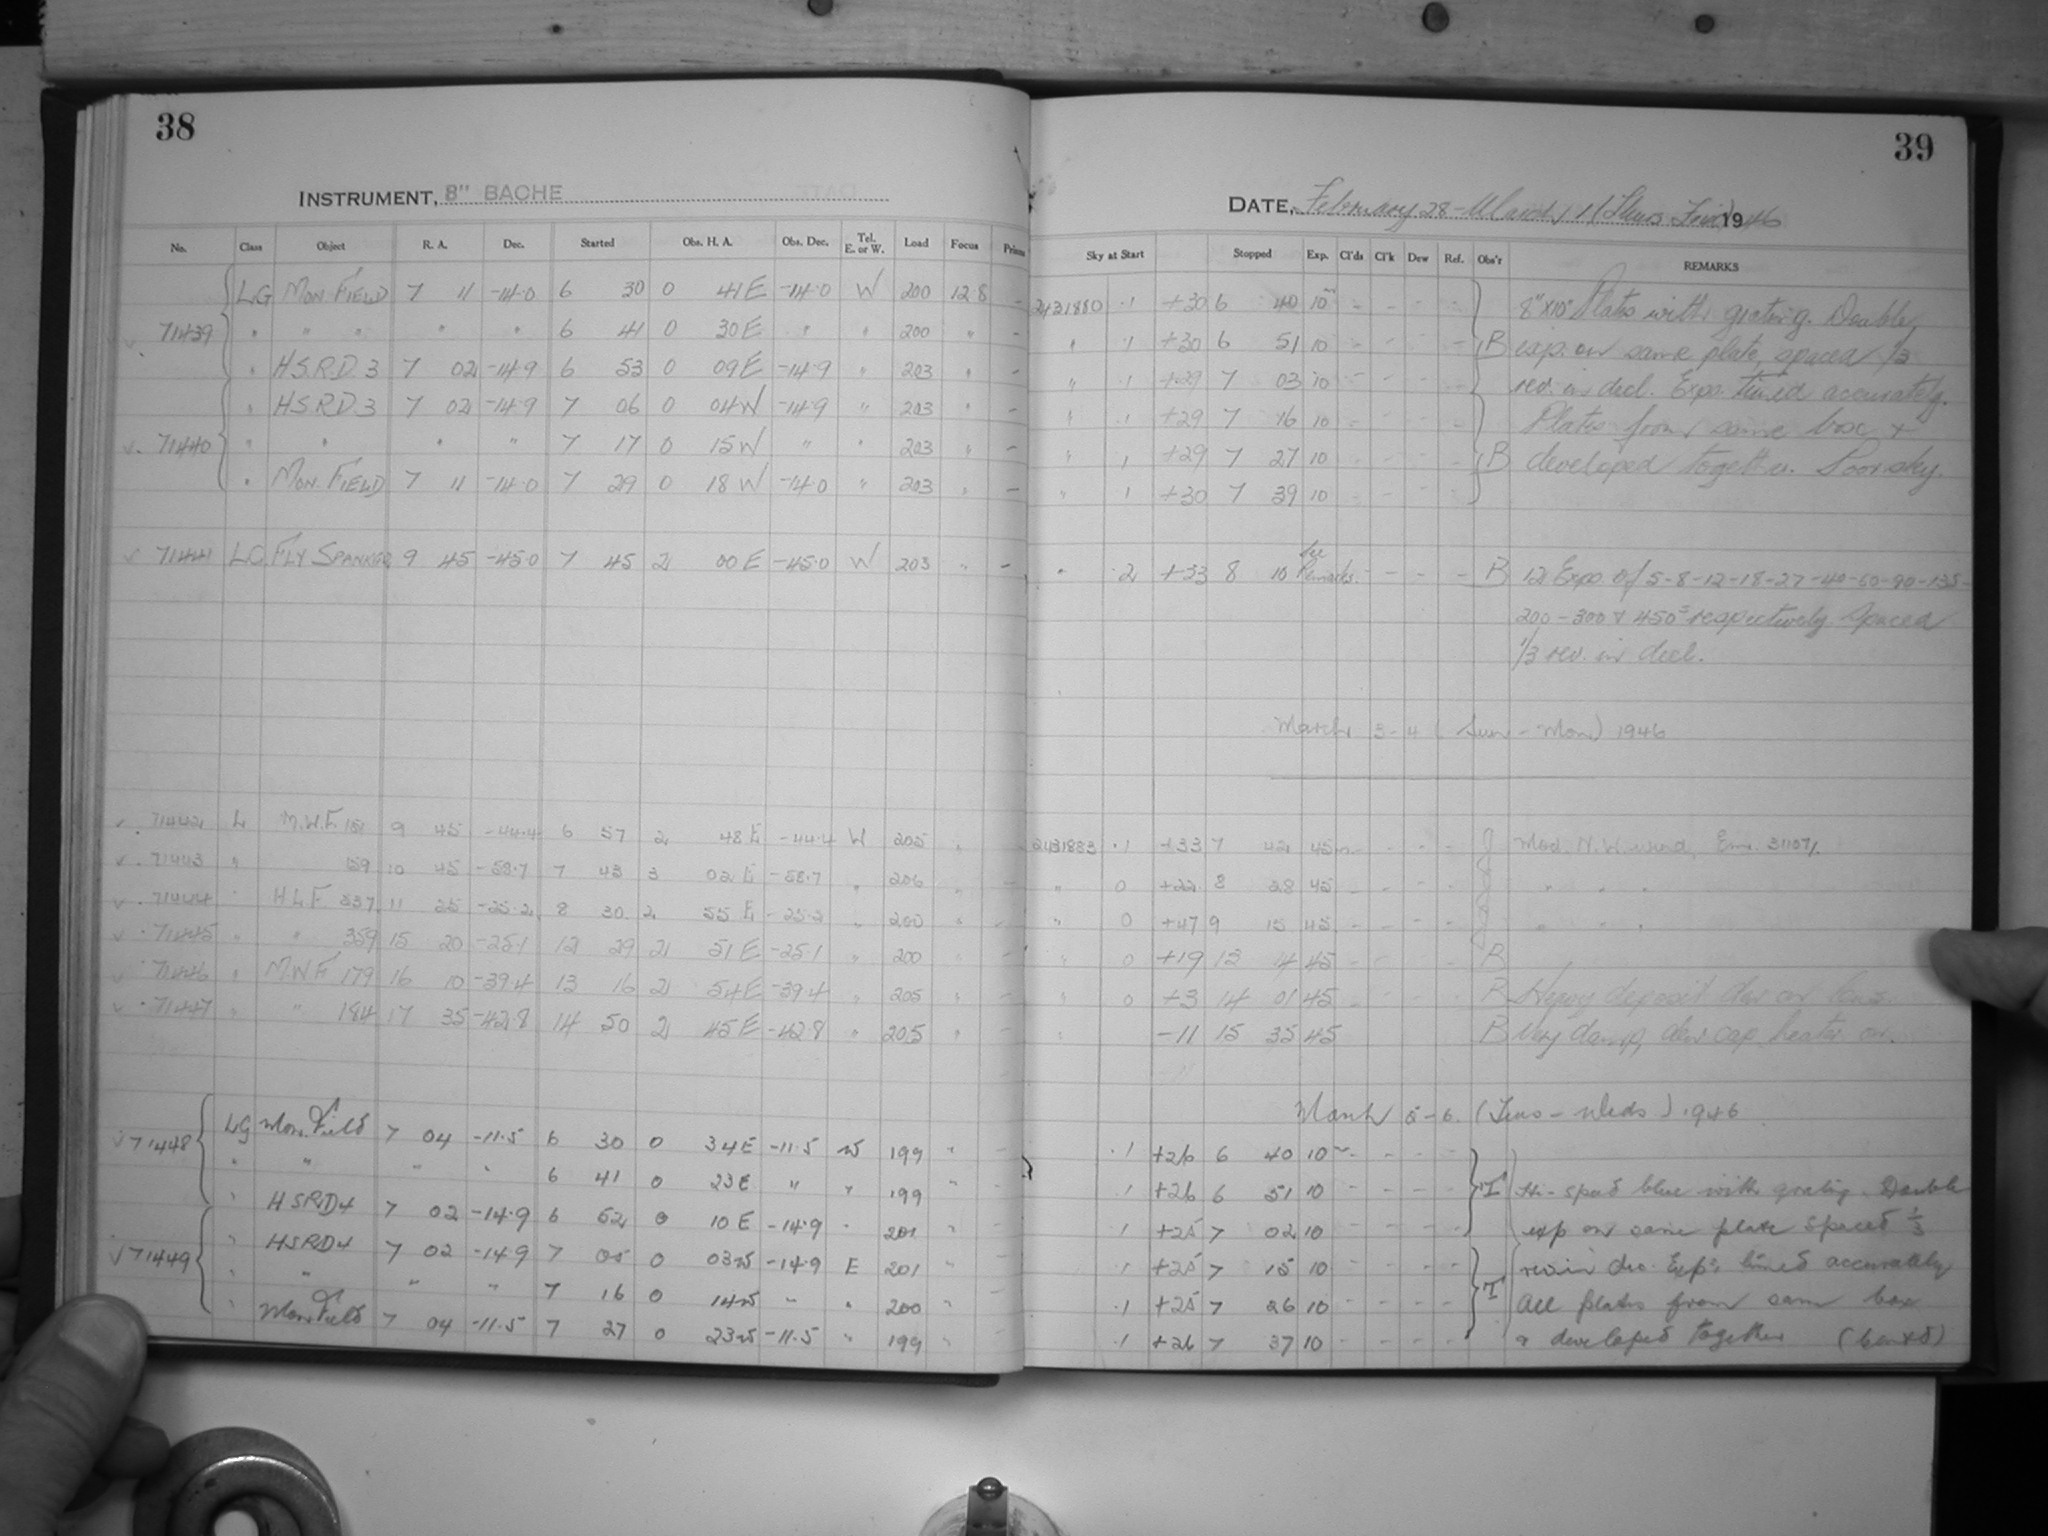 38
INSTRUMENT, 8" BACHE
No. Class Object R. A. Dec. Started Obs. H. A. Obs. Dec. Tel. E. or W. Load Focus
LG MON. FIELD 7 11 -14.0 6 30 0 41 E -14.0 W 200 12.8 -
71439 " " " " " 6 41 0 30 E " " 200 "
" H.S.R.D. 3 7 02 -14.9 6 53 0 09 E -14.9 " 203 " -
" H.S.R.D. 3 7 02 -14.9 7 06 0 04 W -14.9 " 203 " -
71440 " " " " 7 17 0 15 W " " 203 " -
" MON. FIELD 7 11 -14.0 7 29 0 18 W -14.0 " 203 " -
71441 LC FLY SPANKER 9 45 -45.0 7 45 2 00 E -45.0 W 203 " -
71442 L M.W.F. 151 9 45 -44.4 6 57 2 48 E -44.4 W 205 "
71443 " 159 10 45 -58.7 7 43 3 02 E -58.7 " 206 " -
71444 " H.L.F. 337 11 35 -25.2 8 30 2 55 E -25.2 " 200 " -
71445 " " 359 15 20 -25.1 12 29 2 51 E -25.1 " 200 " -
71446 " M.W.F. 179 16 10 -39.4 13 16 2 54 E -39.4 " 205 " -
71447 " " 184 17 35 -42.8 14 50 2 45 E -42.8 " 205 " -
LG Mon. Field 7 04 -11.5 6 30 0 34 E -11.5 W 199 " -
71448 " " " " 6 41 0 23 E " " 199 "
" HSRD4 7 02 -14.9 6 52 0 10 E -14.9 " 201 "
" HSRD4 7 02 -14.9 7 05 0 03 W -14.9 E 201 "
71449 " " " " 7 16 0 14 W " " 200 "
" Mon. Field 7 04 -11.5 7 27 0 23 W -11.5 " 199 "
39
DATE, February 28 - March 1 1946
Sky at Start Stopped Exp. Cl'ds Cl'k Dew Ref. Obs'r REMARKS
2431880 .1 +30 6 40 10m - - - - 8"x10" Plates with grating. Double
" .1 +30 6 51 10 - - - - B exp. on same plate, spaced 1/3
" .1 +29 7 03 10 - - - - rev. in decl. Expo. timed accurately.
" .1 +29 7 16 10 - - - - Plates from same box +
" 1 +29 7 27 10 - - - - B developed together. Poor sky.
" 1 +30 7 39 10 - - - -
" .2 +33 8 10 See Remarks. - - - - B 12 Expo. of 5-8-12-18-27-40-60-90-135-
200-300 & 450s respectively spaced
1/3 rev. in decl.
March 3-4 (Sun - Mon) 1946
2431883 .1 +33 7 42 45m - - - - J Mod. N.W. wind, Em. 31107/.
" 0 +22 8 28 45 - - - - J " " "
" 0 +47 9 15 45 - - - - J " " "
" 0 +19 13 14 45 - - - - B
" 0 +3 14 01 45 - - - - B Heavy deposit dew on lens.
" -11 15 35 45 B Very damp, dew cap heater on.
March 5-6. (Tues - Weds) 1946
.1 +26 6 40 10m - - - -
.1 +26 6 51 10 - - - - T Hi-speed blue with grating. Double
.1 +25 7 02 10 - - - - exp on same plate spaced 1/3
.1 +25 7 15 10 - - - - rev in dec. Exps. timed accurately
.1 +25 7 26 10 - - - - T All plates from same box
.1 +26 7 37 10 - - - - & developed together